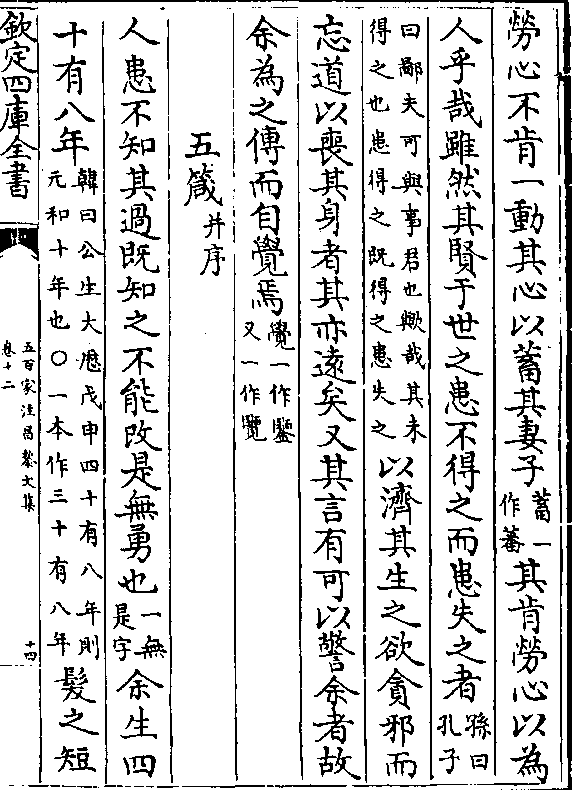 勞心不肯一動其心以蓄其妻子蓄一作蕃其肯勞心以為
人乎哉雖然其賢于世之患不得之而患失之者孫曰孔子
曰鄙夫可與事君也歟哉其未得之也患得之既得之患失之以濟其生之欲貪邪而
忘道以喪其身者其亦遠矣又其言有可以警余者故
余為之傳而自覺焉覺一作鑒又一作覽
五箴并序
人患不知其過既知之不能改是無勇也一無是字余生四
十有八年韓曰公生大厯戊申四十有八年則元和十年也○一本作三十有八年髮之短
欽定四庫全書
五百家注昌黎文集
卷十二
十四